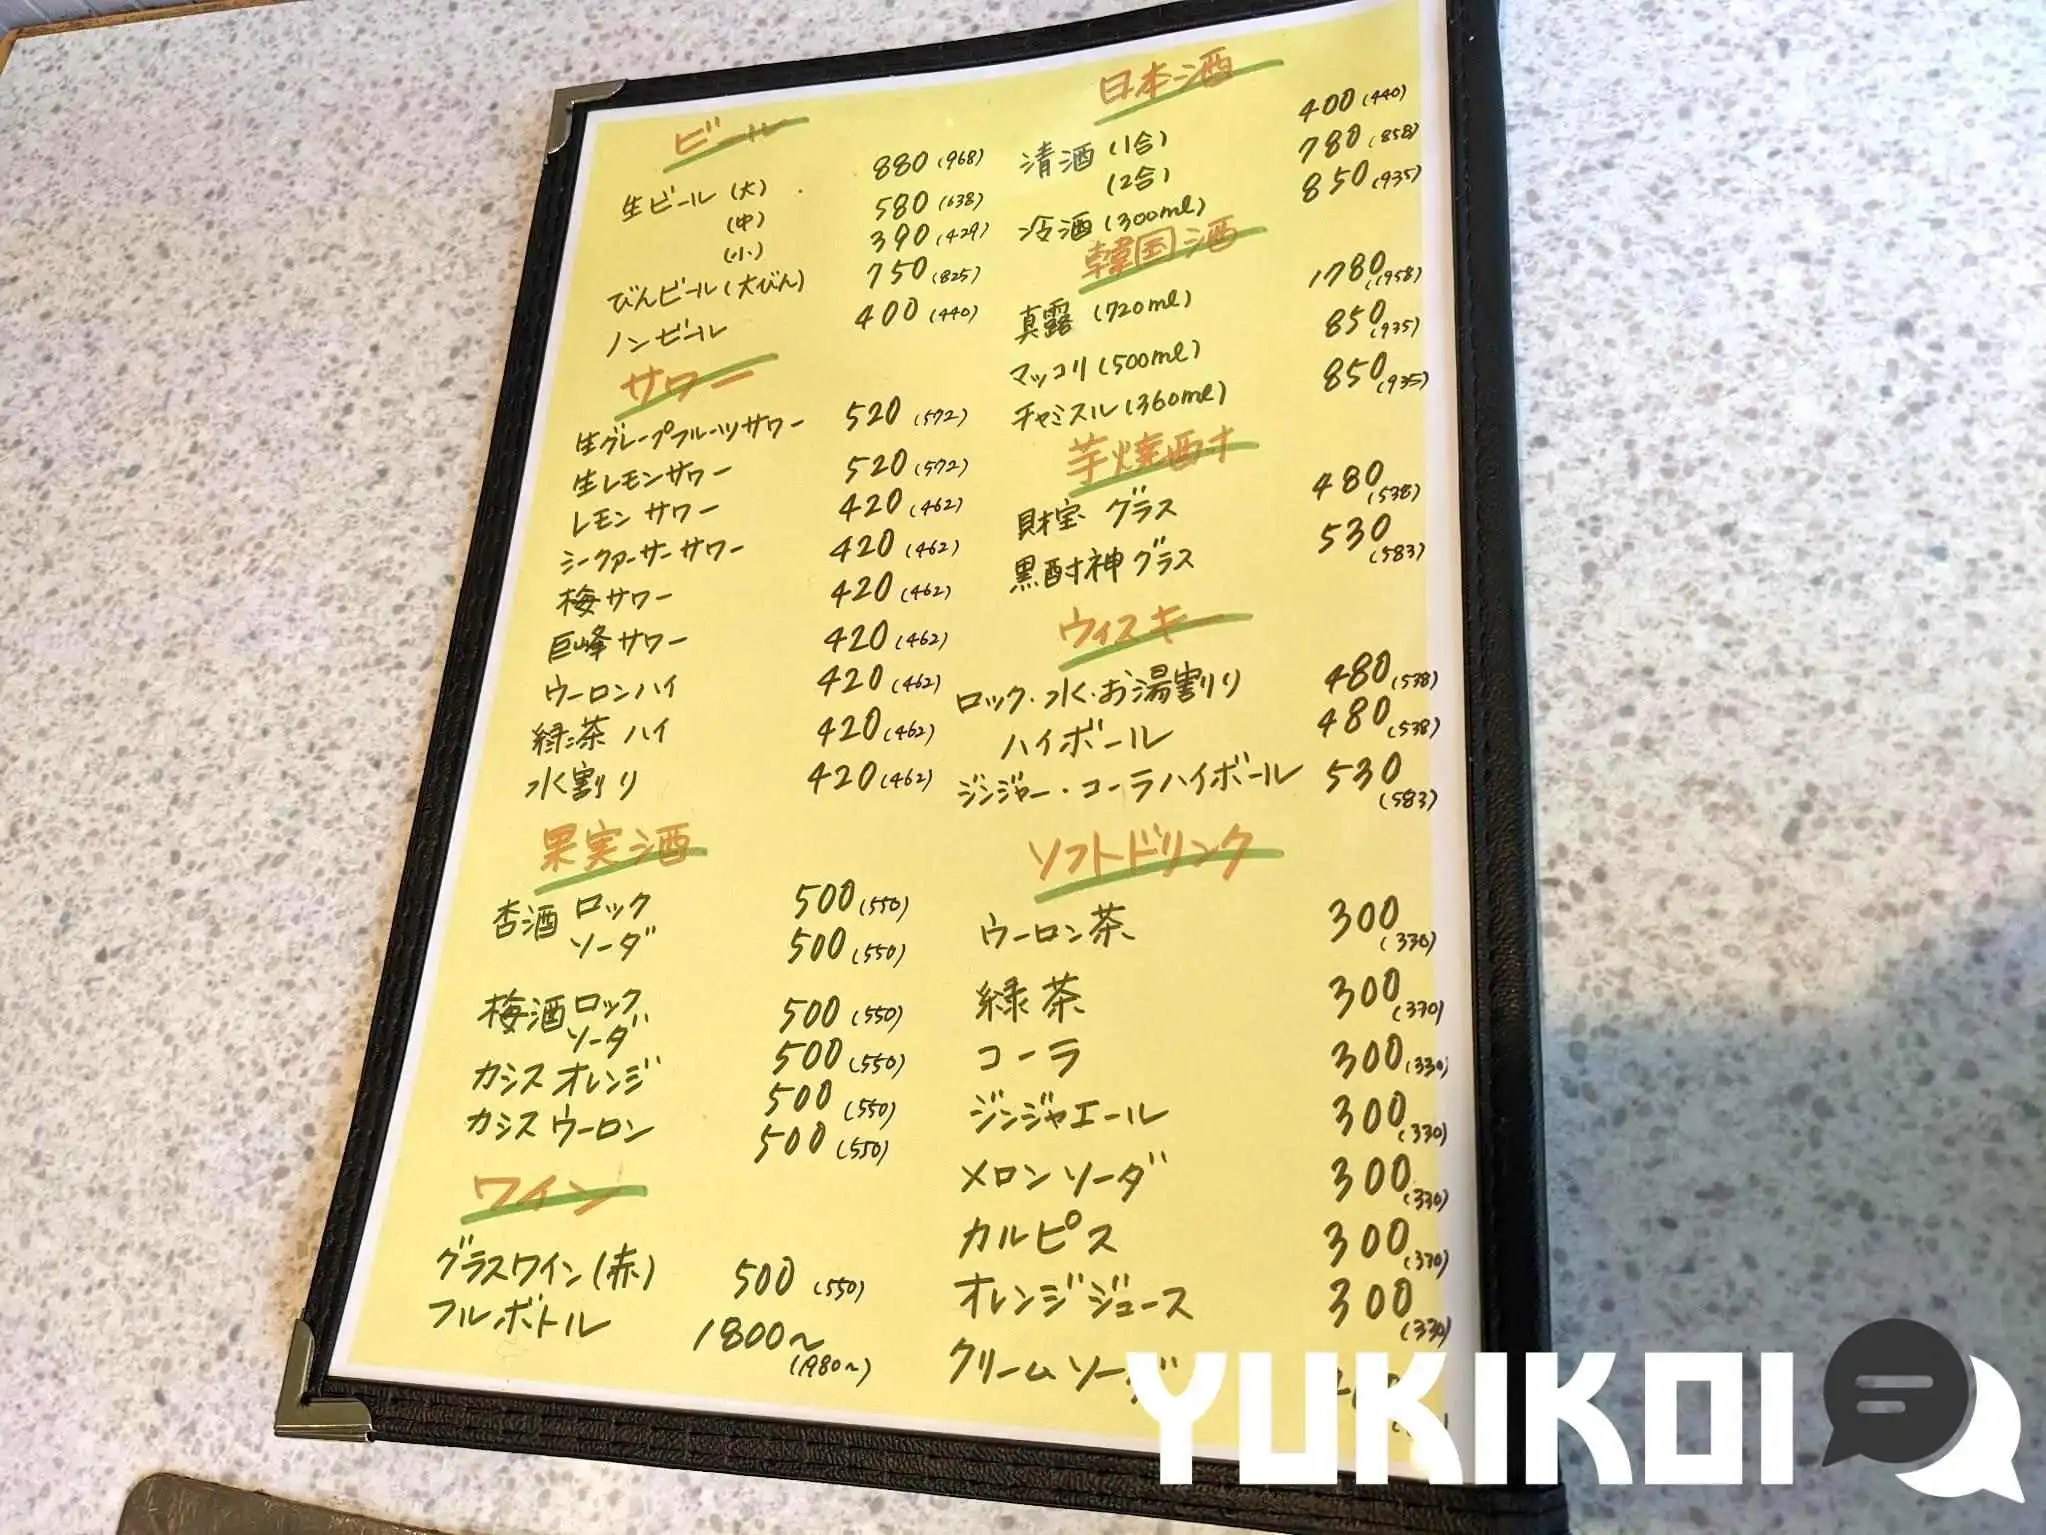 ビール
生ビール (大) 880 (968)
(中) 580 (638)
(小) 390 (429)
びんビール (大びん) 750 (825)
ノンビール 400 (440)
サワー
生グレープフルーツサワー 520 (572)
生レモンサワー 520 (572)
レモン サワー 420 (462)
シークァーサーサワー 420 (462)
梅サワー 420 (462)
巨峰サワー 420 (462)
ウーロンハイ 420 (462)
緑茶ハイ 420 (462)
水割り 420 (462)
果実酒
杏酒 ロック 500 (550)
ソーダ 500 (550)
梅酒 ロック 500 (550)
ソーダ 500 (550)
カシスオレンジ 500 (550)
カシスウーロン 500 (550)
ワイン
グラスワイン (赤) 500 (550)
フルボトル 1800〜
(1980〜)
日本酒
清酒 (1合) 400 (440)
(2合) 780 (858)
冷酒 (300ml) 850 (935)
韓国酒
真露 (720ml) 1780 (958)
マッコリ (500ml) 850 (935)
チャミスル (360ml) 850 (935)
芋焼酎
財宝 グラス 480 (538)
黒酎神グラス 530 (583)
ウィスキー
ロック・水・お湯割り 480 (538)
ハイボール 480 (538)
ジンジャー・コーラハイボール 530 (583)
ソフトドリンク
ウーロン茶 300 (330)
緑茶 300 (330)
コーラ 300 (330)
ジンジャエール 300 (330)
メロンソーダ 300 (330)
カルピス 300 (330)
オレンジジュース 300 (330)
クリームソーダ
YUKIKOI